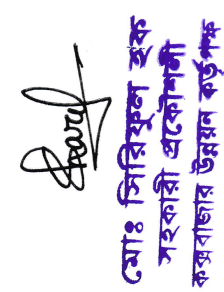 মোঃ সিরিফুল হক
সহকারী প্রকৌশলী
কক্সবাজার উন্নয়ন কর্তৃপক্ষ